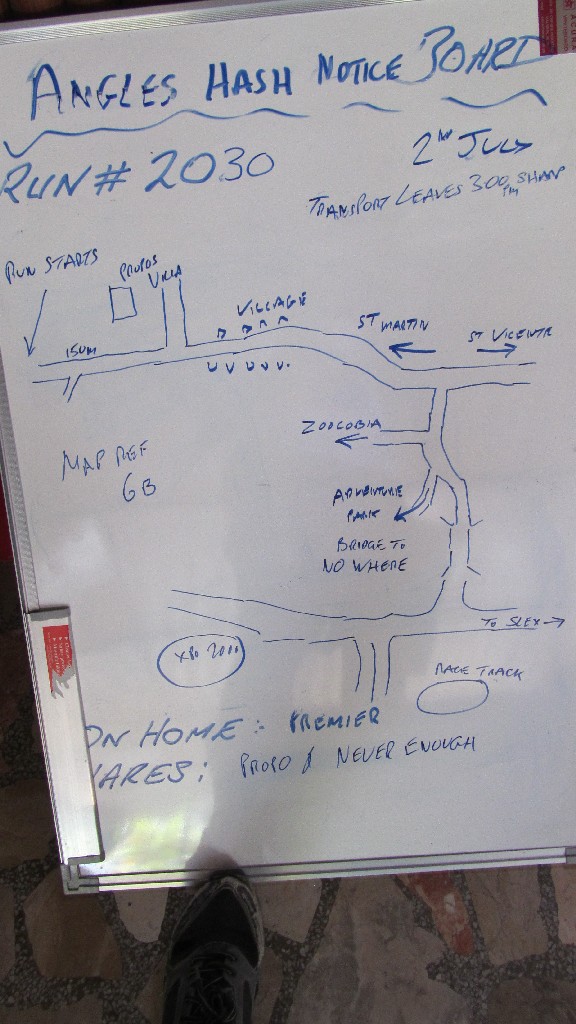 ANGLES HASH NOTICE BOARD
RUN # 2030
2ND JULY
TRANSPORT LEAVES 300 SHARP
PM
RUN STARTS
PROPOS
VILLA
VILLAGE
150M
ST MARTIN
ST VICENTE
ZOOCOBIA
MAP REF
6B
ADVENTURE
PARK
BRIDGE TO
NO WHERE
TO SLEX
XPO 2000
RACE TRACK
ON HOME : PREMIER
HARES : PROPO & NEVER ENOUGH